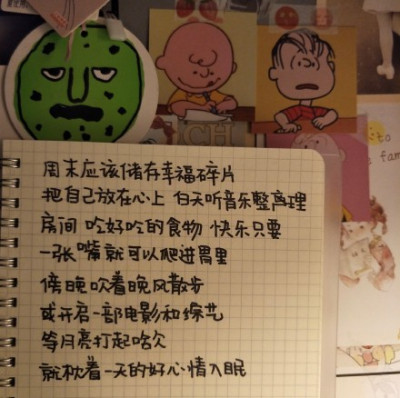 ICH
周末应该储存幸福碎片
把自己放在心上 白天听音乐整离理
房间 吃好吃的食物 快乐只要
一张嘴就可以爬进胃里
傍晚吹着晚风散步
或开启一部电影和综艺
等月亮打起哈欠
就枕着一天的好心情入眠